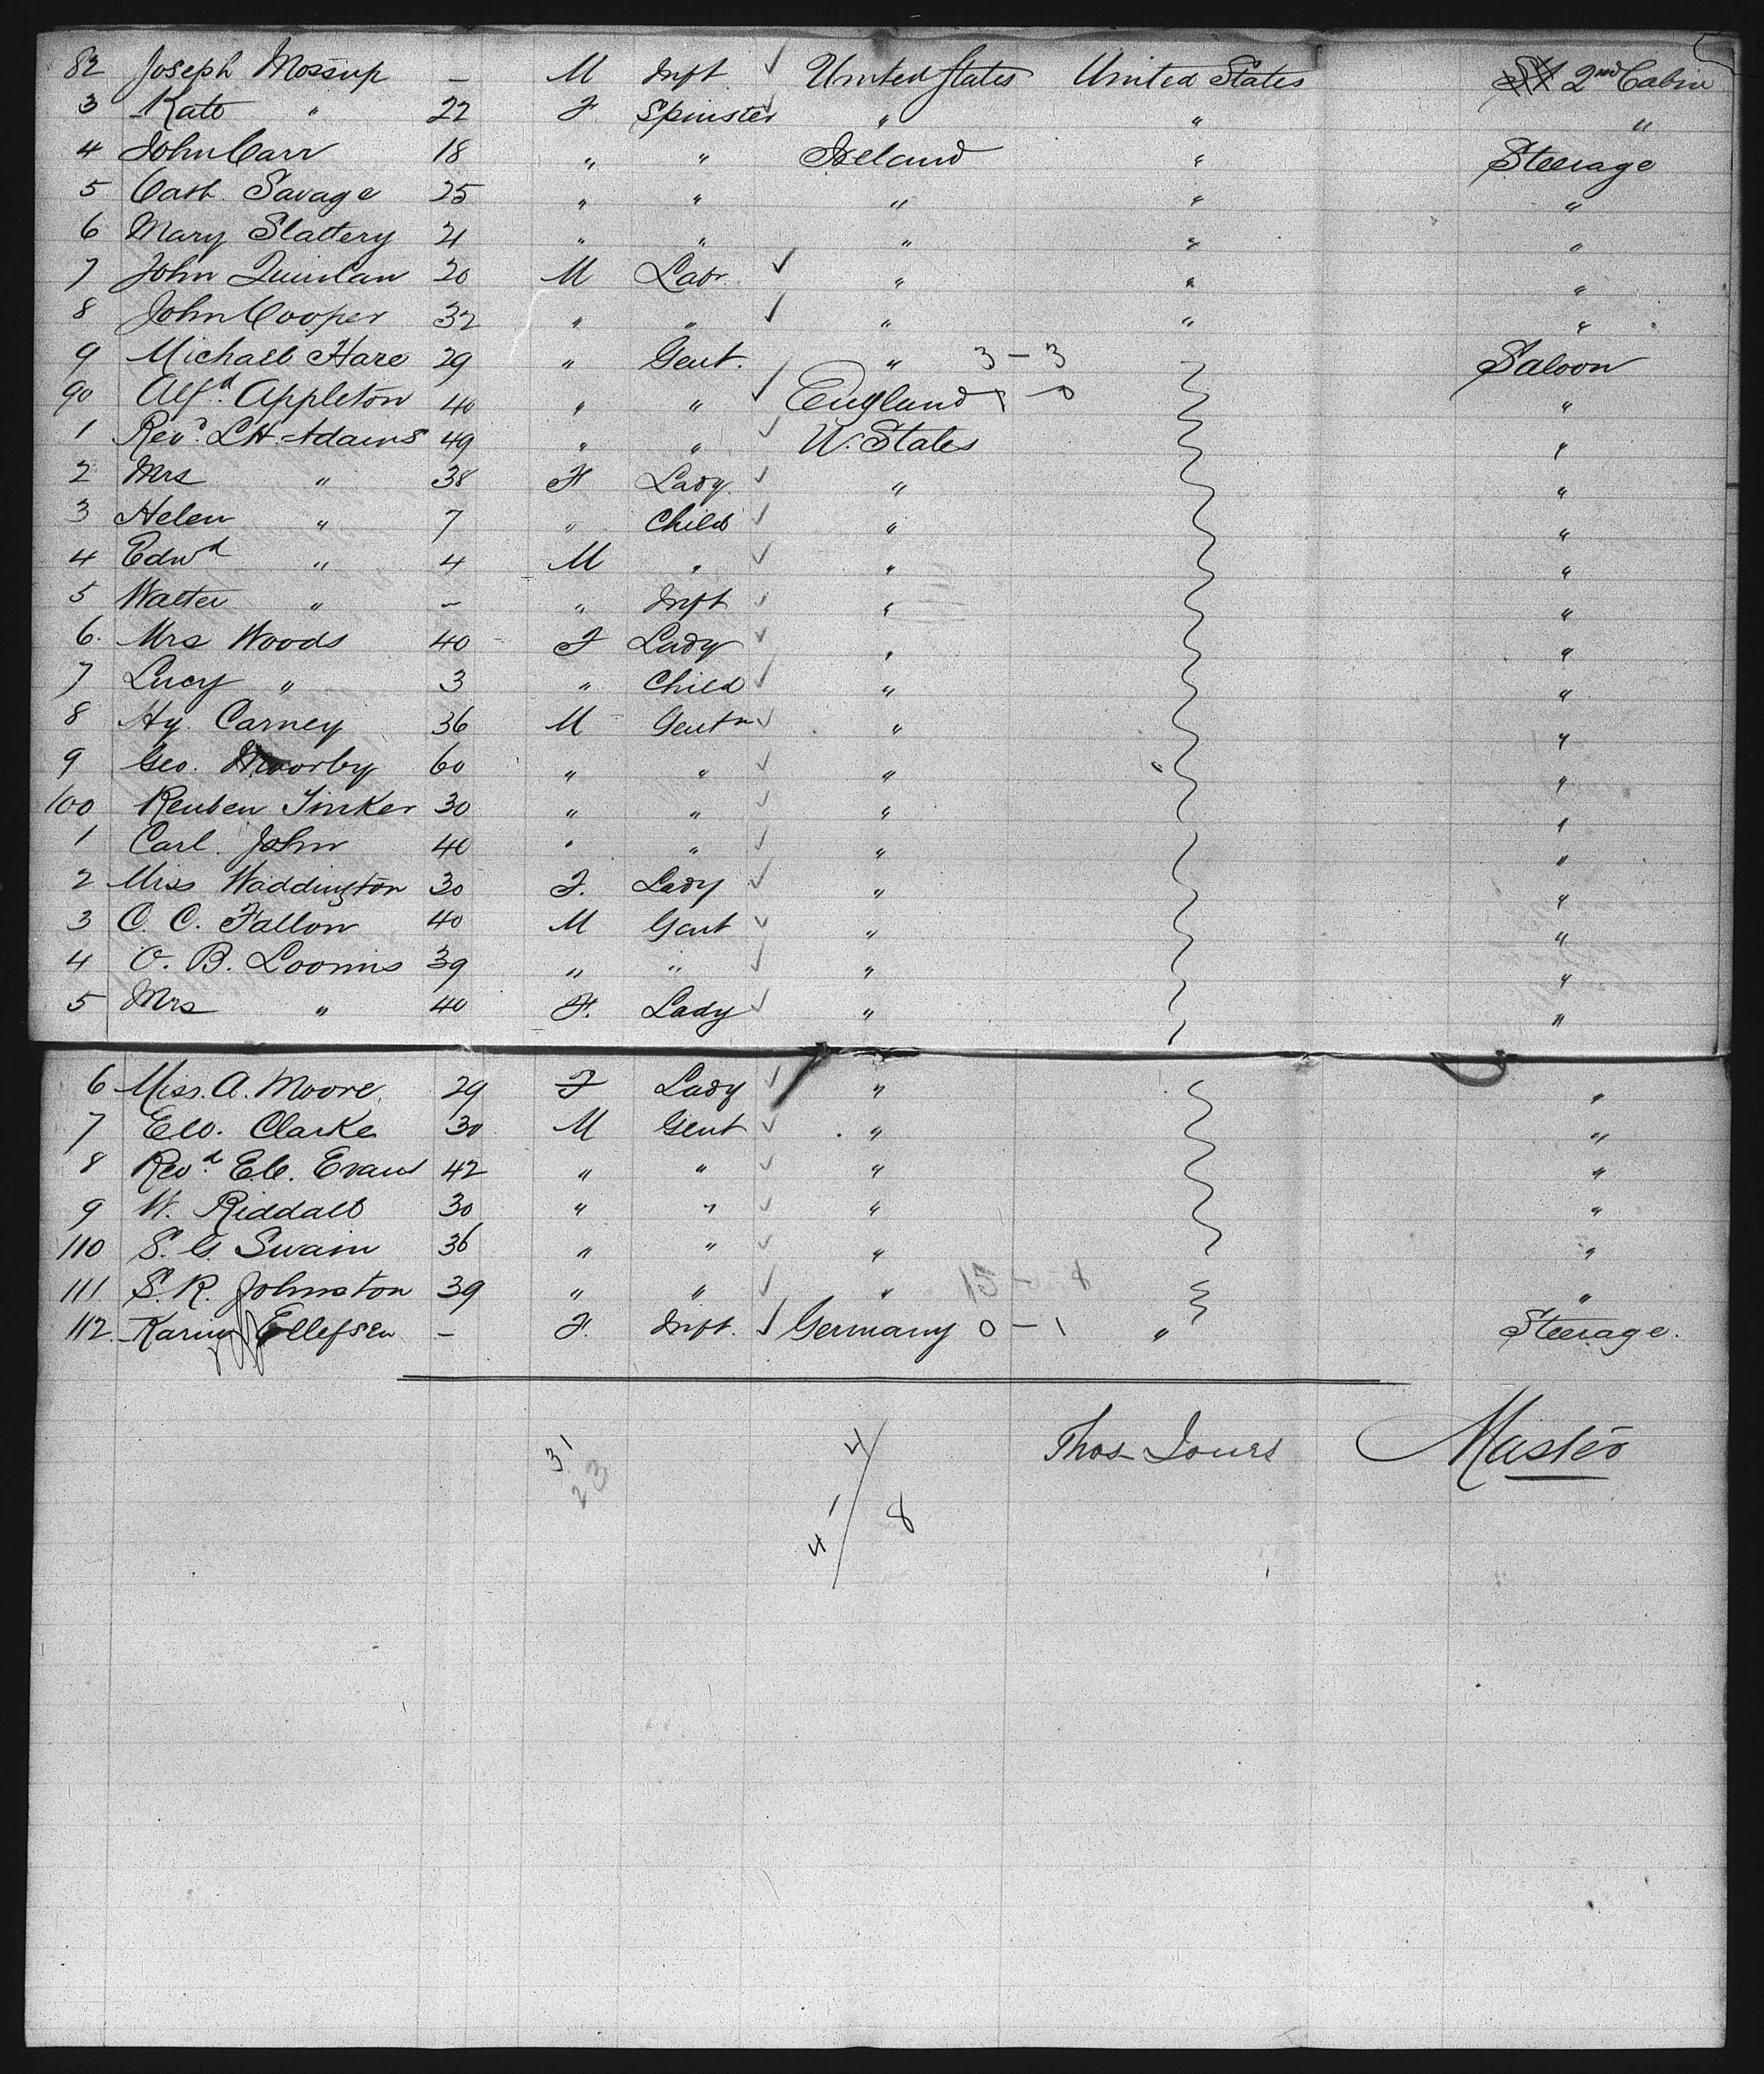 82 Joseph Mossup — M Inft ✓ United States United States 2nd Cabin
3 Kate " 22 F Spinster ✓ " " "
4 John Carr 18 " " Ireland " Steerage
5 Cath. Savage 25 " " " " "
6 Mary Slattery 21 " " " " "
7 John Quinlan 20 M Labr. ✓ " " "
8 John Cooper 32 " " ✓ " " "
9 Michael Hare 29 " Gent. " 3 - 3 Saloon
90 Alfd. Appleton 40 " " ✓ England 1 - 0 "
1 Revd. L H Adams 49 " " ✓ U. States "
2 Mrs " 38 F Lady. ✓ " "
3 Helen " 7 " Child ✓ " "
4 Edwd " 4 M " ✓ " "
5 Walter " — " Inft ✓ " "
6. Mrs Woods 40 F Lady ✓ " "
7 Lucy " 3 " Child ✓ " "
8 Hy. Carney 36 M Gentn ✓ " "
9 Geo. Moorby 60 " " ✓ " "
100 Reuben Tinker 30 " " ✓ " "
1 Carl. John 40 " " ✓ " "
2 Miss Waddington 30 F. Lady ✓ " "
3 C. C. Fallon 40 M Gent ✓ " "
4 O. B. Loomis 39 " " ✓ " "
5 Mrs " 40 F. Lady ✓ " "
6 Miss. A. Moore 29 F Lady ✓ " "
7 E.W. Clarke 30 M Gent ✓ " "
8 Revd. E.C. Evans 42 " " ✓ " "
9 W. Riddall 30 " " ✓ " "
110 S. G. Swain 36 " " ✓ " "
111 S. R. Johnston 39 " " ✓ " 15 - 8 "
112. Ellefsen — F. Inft. ✓ Germany 0 - 1 " Steerage.
Thos Jones Master
31
23
4
1
4
8